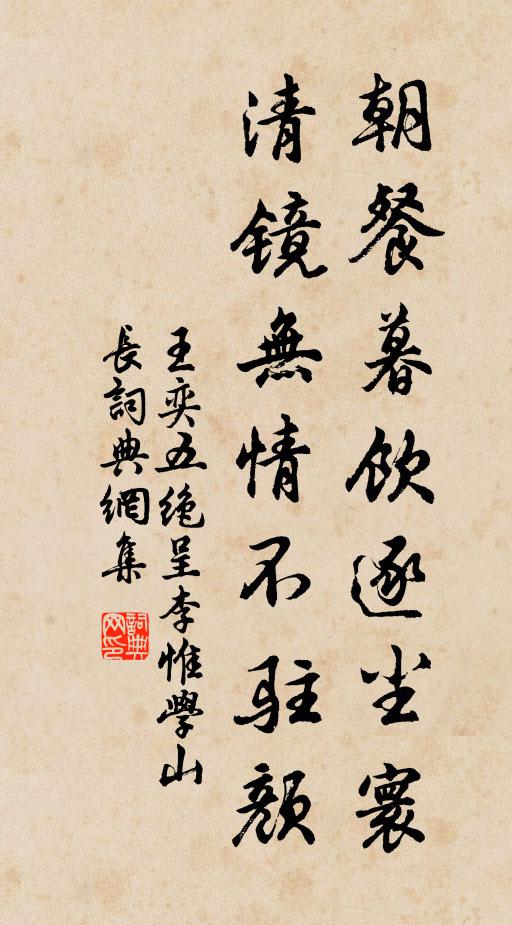 朝餐暮飲逐尘寰
清镜無情不駐顏
王奕五绝呈李惟學山
長詞典網集
詞典网印